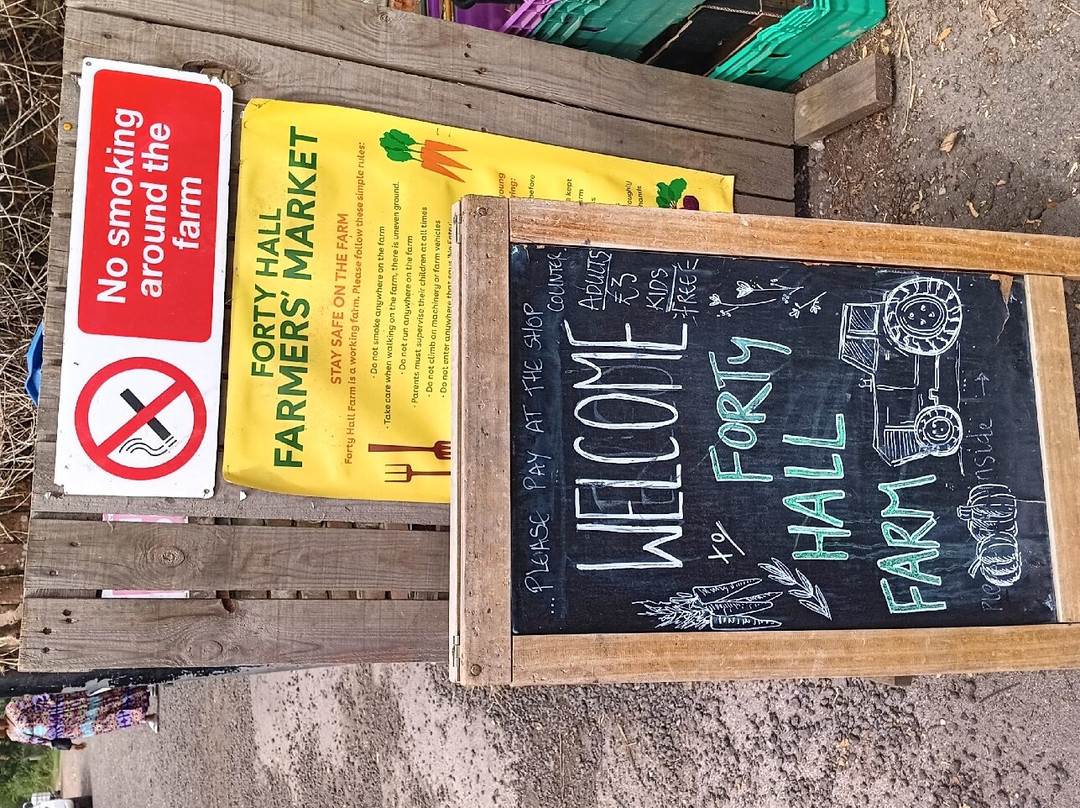 No smoking
around the
farm
FORTY HALL
FARMERS' MARKET
STAY SAFE ON THE FARM
Forty Hall Farm is a working farm. Please follow these simple rules:
· Do not smoke anywhere on the farm
· Take care when walking on the farm, there is uneven ground.
· Do not run anywhere on the farm
· Parents must supervise their children at all times
· Do not climb on machinery or farm vehicles
· Do not enter anywhere that says 'No Entry
before
kept
hands
...PLEASE PAY AT THE SHOP
COUNTER
ADULTS
£3
KIDS
FREE
WELCOME
to
FORTY
HALL
FARM
inside